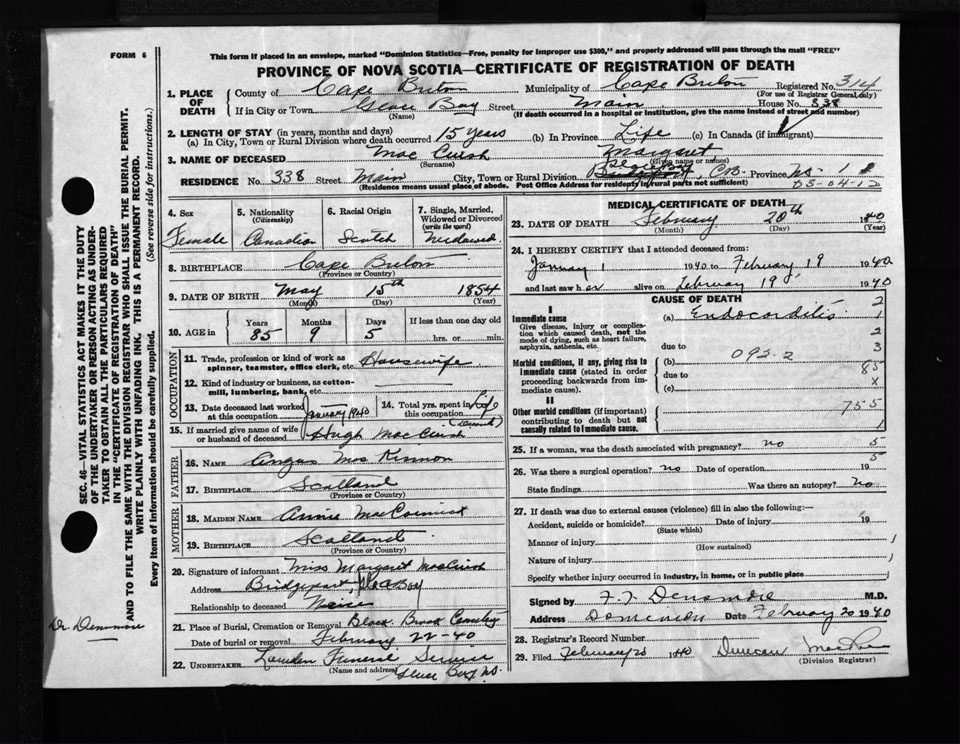 FORM 6
This form if placed in an envelope, marked "Dominion Statistics—Free, penalty for improper use $300," and properly addressed will pass through the mail "FREE"
PROVINCE OF NOVA SCOTIA—CERTIFICATE OF REGISTRATION OF DEATH
1. PLACE OF DEATH
County of Cape Breton Municipality of Cape Breton Registered No. 314
(For use of Registrar General only)
If in City or Town Glace Bay Street Main House No. 338
(Name) (If death occurred in a hospital or institution, give the name instead of street and number)
2. LENGTH OF STAY (in years, months and days)
(a) In City, Town or Rural Division where death occurred 15 years (b) In Province Life (c) In Canada (if immigrant)
3. NAME OF DECEASED Mac Cuish Margaret
(Surname) (Given name or names)
RESIDENCE No. 338 Street Main City, Town or Rural Division Bridgeport, C.B. Province N.S.
(Residence means usual place of abode. Post Office Address for residents in rural parts not sufficient)
03-04-12
4. Sex Female
5. Nationality (Citizenship) Canadian
6. Racial Origin Scotch
7. Single, Married, Widowed or Divorced (write the word) Widowed
8. BIRTHPLACE Cape Breton
(Province or Country)
9. DATE OF BIRTH May 15th 1854
(Month) (Day) (Year)
10. AGE in Years 85 Months 9 Days 5 If less than one day old
hrs. or min.
OCCUPATION
11. Trade, profession or kind of work as spinner, teamster, office clerk, etc. Housewife
12. Kind of industry or business, as cotton-mill, lumbering, bank, etc.
13. Date deceased last worked at this occupation January 1940
14. Total yrs. spent in this occupation Life
15. If married give name of wife or husband of deceased Hugh MacCuish
FATHER
16. NAME Angus Mc Kinnon
17. BIRTHPLACE Scotland
(Province or Country)
MOTHER
18. MAIDEN NAME Annie MacCormick
19. BIRTHPLACE Scotland
(Province or Country)
20. Signature of informant Miss Margaret MacCuish
Address Bridgeport, Glace Bay
Relationship to deceased Neice
21. Place of Burial, Cremation or Removal Black Brook Cemetery
Date of burial or removal February 22-40
22. UNDERTAKER Funeral Service
(Name and address) Glace Bay N.S.
MEDICAL CERTIFICATE OF DEATH
23. DATE OF DEATH February 20th 1940
(Month) (Day) (Year)
24. I HEREBY CERTIFY that I attended deceased from:
January 1 1940 to February 19 1940
and last saw her alive on February 19 1940
CAUSE OF DEATH
I
Immediate cause
Give disease, injury or complication which caused death, not the mode of dying, such as heart failure, asphyxia, asthenia, etc.
(a) Endocarditis
due to
Morbid conditions, if any, giving rise to immediate cause (stated in order proceeding backwards from immediate cause).
(b) 092-2
due to
(c)
II
Other morbid conditions (if important) contributing to death but not causally related to immediate cause.
2
1
2
3
85
x
755
1
25. If a woman, was the death associated with pregnancy? no 5
26. Was there a surgical operation? no Date of operation 19 5
State findings Was there an autopsy? no
27. If death was due to external causes (violence) fill in also the following:—
Accident, suicide or homicide? Date of injury 19
(State which)
Manner of injury
(How sustained)
Nature of injury
Specify whether injury occurred in industry, in home, or in public place
Signed by F. T. Densmore M.D.
Address Dominion Date February 20 1940
28. Registrar's Record Number
29. Filed February 20 1940 Duncan
(Division Registrar)
SEC. 46—VITAL STATISTICS ACT MAKES IT THE DUTY
OF THE UNDERTAKER OR PERSON ACTING AS UNDERTAKER TO OBTAIN ALL THE PARTICULARS REQUIRED
IN THE "CERTIFICATE OF REGISTRATION OF DEATH"
AND TO FILE THE SAME WITH THE DIVISION REGISTRAR WHO SHALL ISSUE THE BURIAL PERMIT.
WRITE PLAINLY WITH UNFADING INK. THIS IS A PERMANENT RECORD.
Every item of information should be carefully supplied. (See reverse side for instructions.)
Dr. Densmore